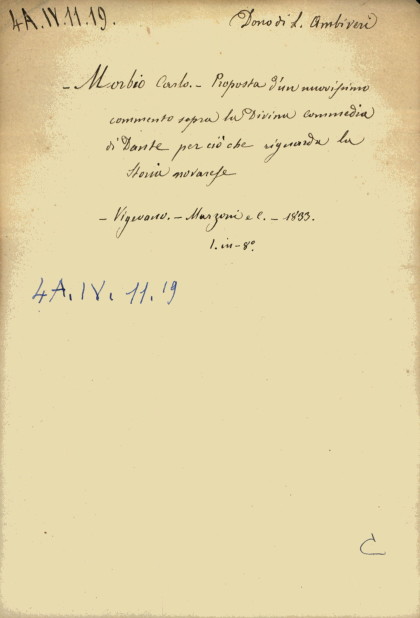 4A.IV.11.19.
Dono di L. Ambiveri
- Morbio Carlo. - Proposta d'un nuovissimo
commento sopra la Divina commedia
di Dante per ciò che riguarda la
Storia novarese
- Vigevano. - Marzoni e C. - 1833.
1. in - 8º
4A.IV. 11.19
C